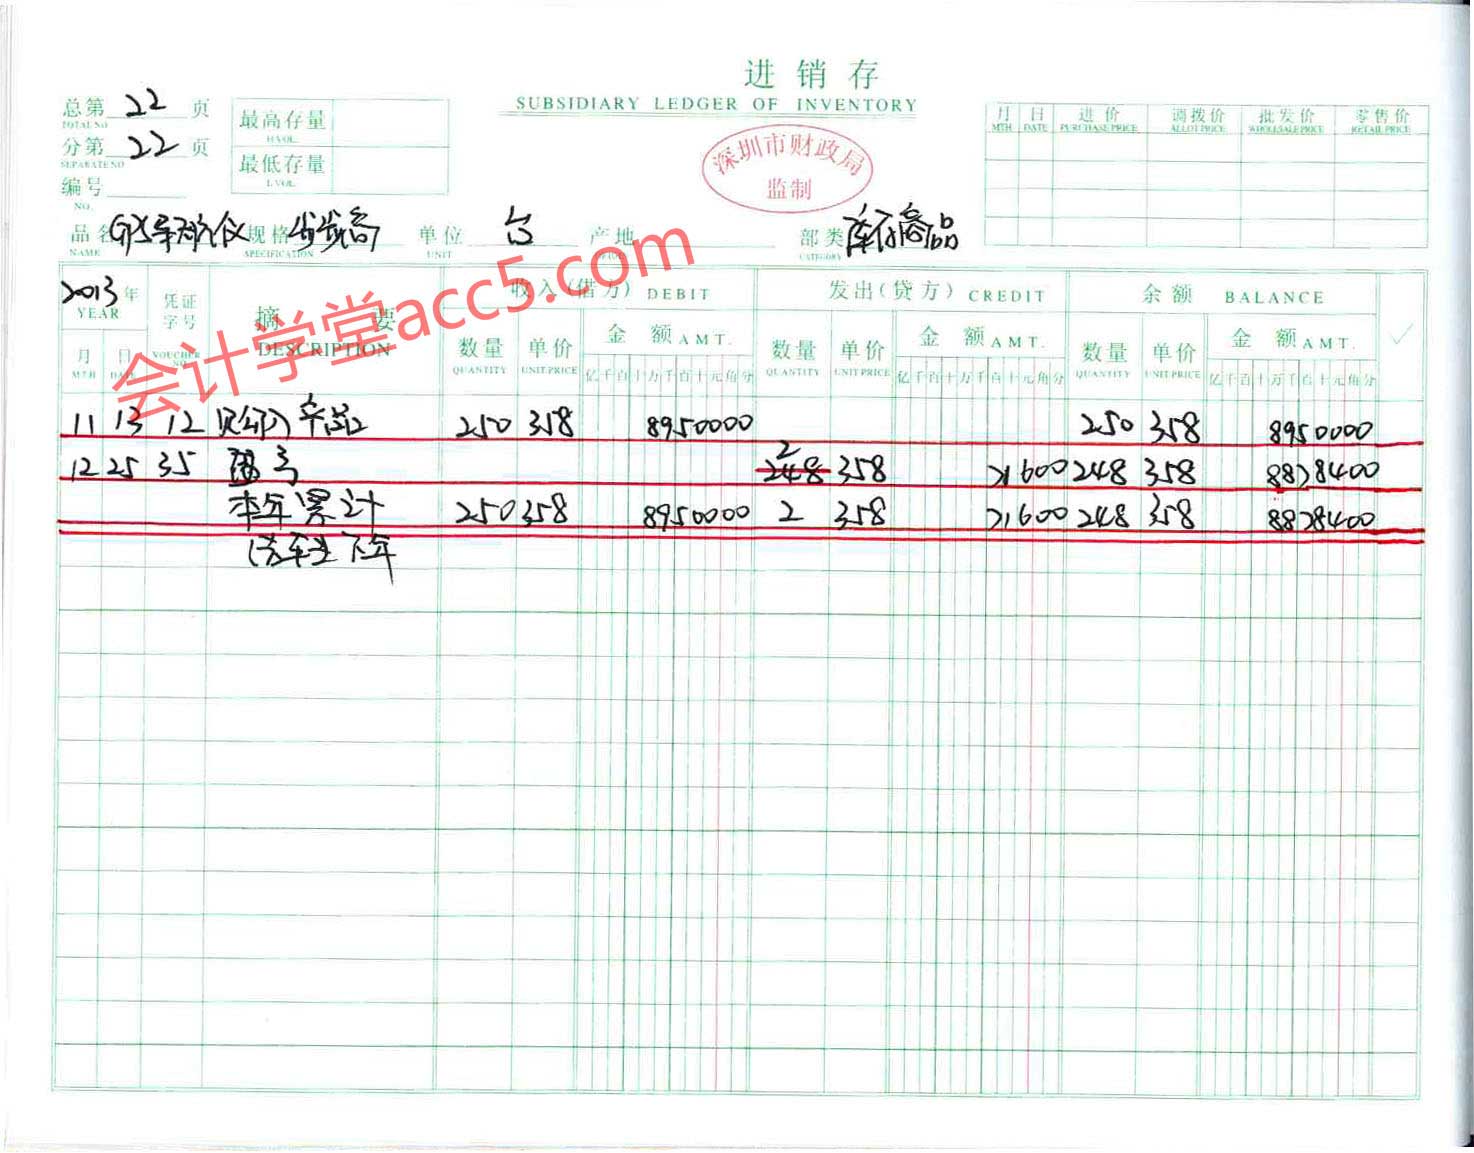 进销存
SUBSIDIARY LEDGER OF INVENTORY
总第 22 页
TOTAL NO
分第 22 页
SEPARATE NO
编号
NO.
最高存量
H.VOL.
最低存量
L.VOL.
深圳市财政局
监制
月 日 进价 调拨价 批发价 零售价
MTH DATE PURCHASE PRICE ALLOT PRICE WHOLESALE PRICE RETAIL PRICE
品名 导航仪 规格 步步高 单位 台 产地 部类 库存商品
NAME SPECIFICATION UNIT CATEGORY
会计学堂acc5.com
2013年 凭证字号 摘要 收入(借方) DEBIT 发出(贷方) CREDIT 余额 BALANCE
YEAR VOUCHER NO. DESCRIPTION
月 日 数量 单价 金额 AMT. 数量 单价 金额 AMT. 数量 单价 金额 AMT.
MTH DATE QUANTITY UNIT PRICE QUANTITY UNIT PRICE QUANTITY UNIT PRICE
亿千百十万千百十元角分 亿千百十万千百十元角分 亿千百十万千百十元角分
11 13 12 250 358 8950000 250 358 8950000
2
12 25 35 248 358 71600 248 358 8878400
本年累计 250 358 8950000 2 358 71600 248 358 8878400
结转下年